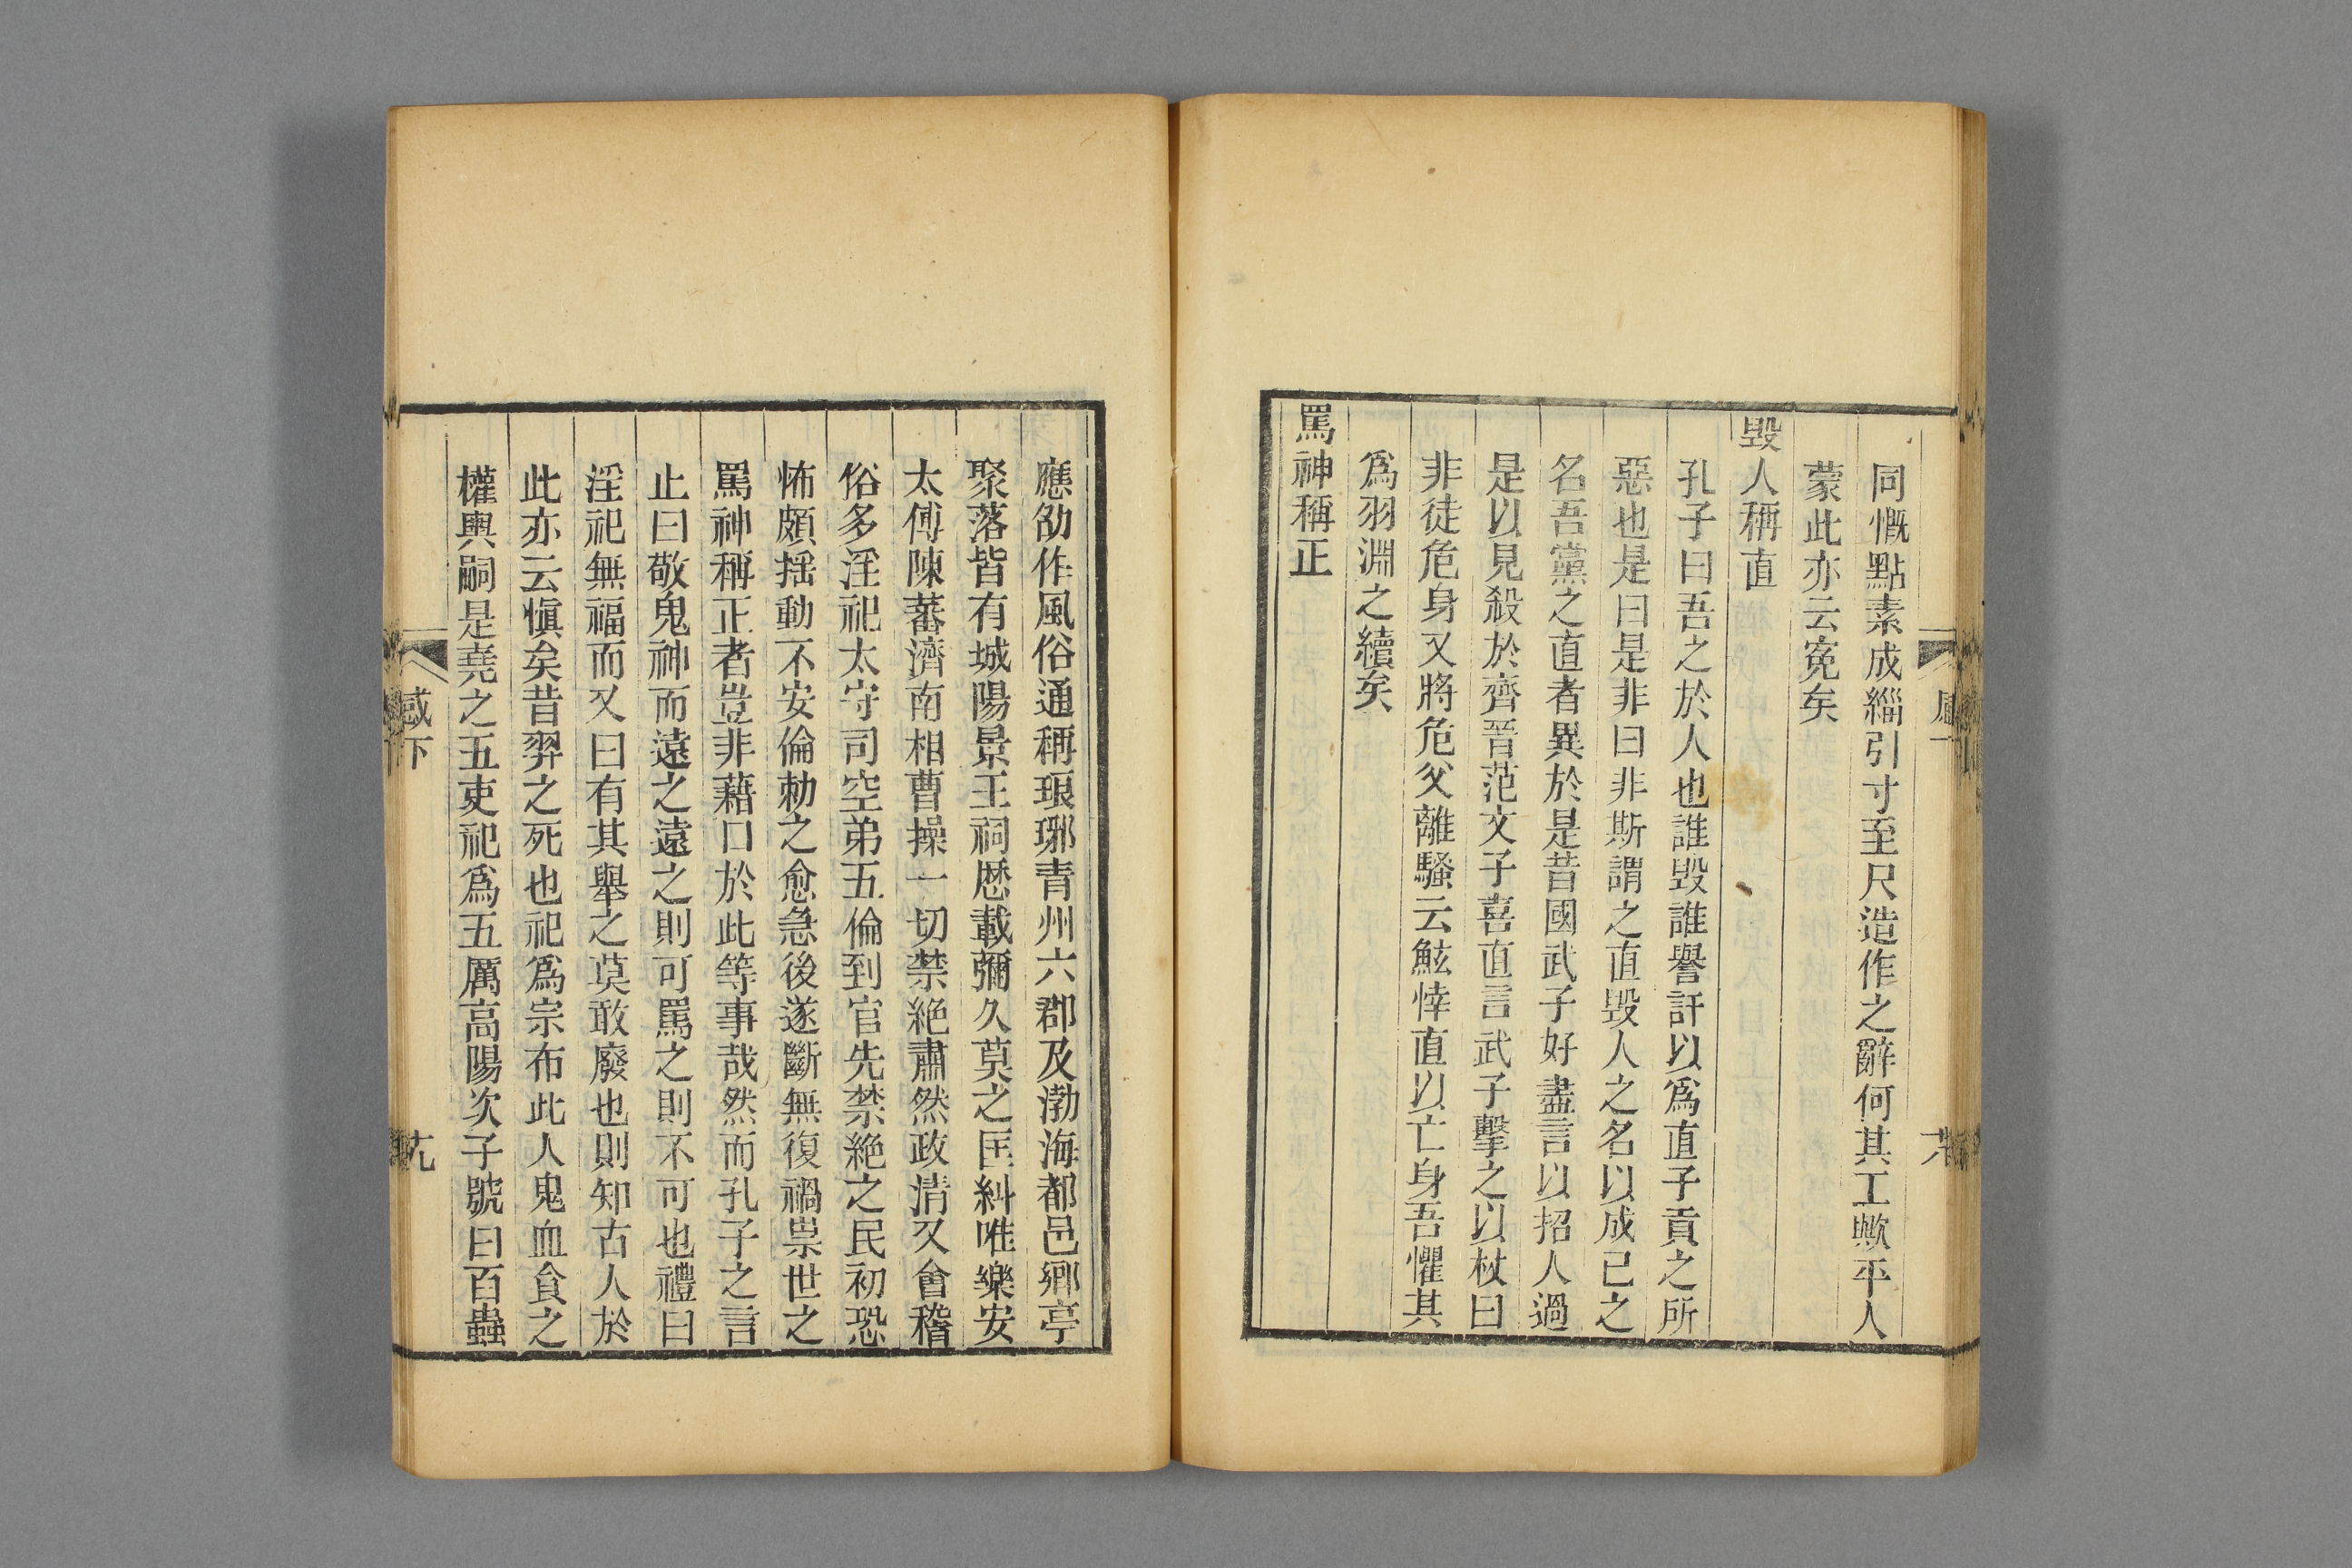 同慨點素成緇引寸至尺造作之辭何其工歟平人
蒙此亦云寃矣
毁人稱直
孔子曰吾之於人也誰毁誰譽訐以爲直子貢之所
惡也是曰是非曰非斯謂之直毁人之名以成己之
名吾黨之直者異於是昔國武子好盡言以招人過
是以見殺於齊晉范文子喜直言武子擊之以杖曰
非徒危身又將危父離騷云鮌悻直以亡身吾懼其
爲羽淵之續矣
罵神稱正
應劭作風俗通稱琅琊青州六郡及渤海都邑鄉亭
聚落皆有城陽景王祠歷載彌久莫之匡糾唯樂安
太傅陳蕃濟南相曹操一切禁絶肅然政清又會稽
俗多淫祀太守司空弟五倫到官先禁絶之民初恐
怖頗揺動不安倫勅之愈急後遂斷無復禍祟世之
罵神稱正者豈非藉口於此等事哉然而孔子之言
止曰敬鬼神而遠之遠之則可罵之則不可也禮曰
淫祀無福而又曰有其舉之莫敢廢也則知古人於
此亦云愼矣昔羿之死也祀爲宗布此人鬼血食之
權輿嗣是堯之五吏祀爲五厲高陽次子號曰百蟲
感下